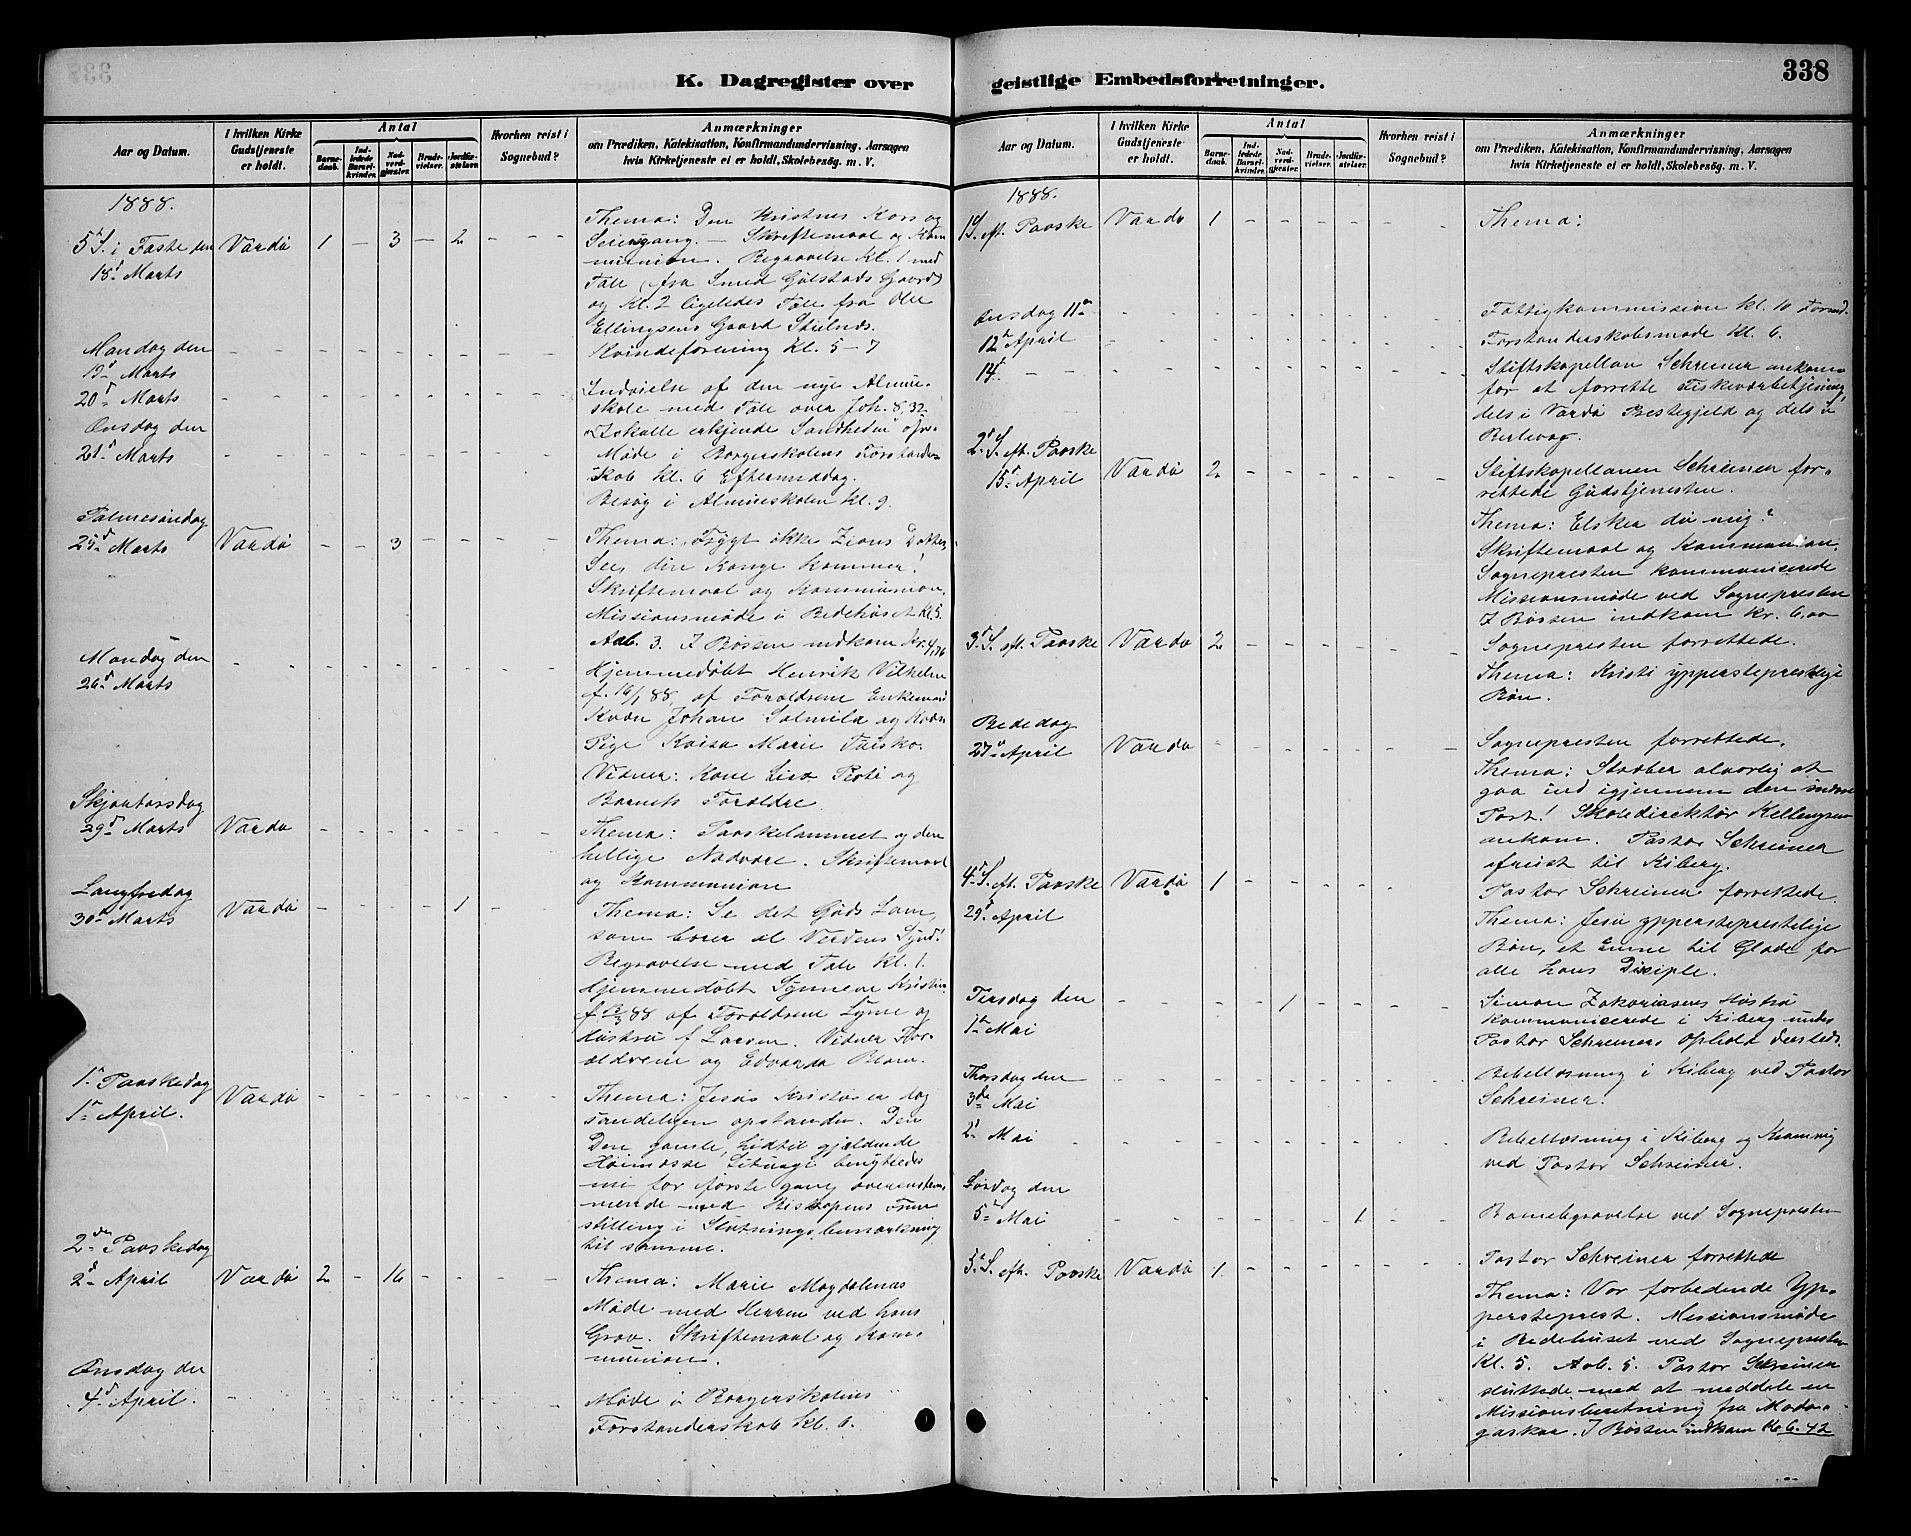 338
K. Dagregister over geistlige Embedsforretninger.
Aar og Datum.
I hvilken Kirke Gudstjeneste er holdt.
Antal
Barnedaab.
Indledede Barselkvinder.
Nadverdgjester.
Brudevielser.
Jordfæstelser.
Hvorhen reist i Sognebud?
Anmærkninger
om Prædiken, Katekisation, Konfirmandundervisning, Aarsagen
hvis Kirketjeneste ei er holdt, Skolebesög. m. V.
1888.
5te S. i Faste den Vardö 1 – 3 – 2 – – –
18d Marts
Thema: Den Kristnes Kors og
Seiersgang. – Skriftemaal og Kom
munion. Begravelse kl. 1 med
Tale (fra Smed Gulstads Gaard)
og kl. 2 ligeledes Tale fra Ole
Ellingsens Gaard
Mandag den
19d Marts
Kvindeforening kl. 5 – 7
20d Marts
Indvielse af den nye Almue-
skole med Tale over Joh. 8,32
I skulle erkjende Sandheden
Onsdag den
21d Marts
Møde i Borgerskolens Forstander-
skab kl. 6 Eftermiddag.
Besøg i Almueskolen kl. 9.
Palmesöndag
25d Marts Vardö – – 3 – – – –
Thema: Frygt ikke Zions Datter,
See, din Konge kommer!
Skriftemaal og Kommunion.
Missionsmøde i Bedehuset kl. 5.
Aab. 3. I Bøssen indkom Kr. 4,76
Mandag den
26d Marts
Hjemmedøbt Henrik Vilhelm
f. 16/1 88, af Forældrene Enkemand
Kvæn Johan Salmila og Kvæn
Pige Kaisa Marie Taisko.
Vidner: Kone Lisa Pesti og
Barnets Forældre.
Skjærtorsdag
29d Marts Vardö
Thema: Paaskelammet og den
hellige Nadvere. Skriftemaal
og Kommunion
Langfredag
30d Marts Vardö – – – – 1 – –
Thema: Se det Guds Lam,
som bærer al Verdens Synd!
Begravelse med Tale kl. 1.
Hjemmedøbt Synneve Kristin
88 af Forældrene Lyme og
Hustru f. Larsen. Vidner For-
ældrene og Edvarda Blom.
1ste Paaskedag
1ste April. Vardö
Thema: Jesus Kristus er dog
sandeligen opstanden. Den
Den gamle, hidtil gjældende
Høimesse Liturgi benyttedes
nu for første gang overenstem-
mende med Biskopens Frem
stilling i Slutningsbemærkning
til samme.
2den Paaskedag
2d April Vardö 2 – 16 – – – –
Thema: Marie Magdalenas
Møde med Herren ved hans
Grav. Skriftemaal og Kom-
munion.
Onsdag den
4d April.
Møde i Borgerskolens
Forstanderskab kl. 6.
Aar og Datum.
I hvilken Kirke Gudstjeneste er holdt.
Antal
Barnedaab.
Indledede Barselkvinder.
Nadverdgjester.
Brudevielser.
Jordfæstelser.
Hvorhen reist i Sognebud?
Anmærkninger
om Prædiken, Katekisation, Konfirmandundervisning, Aarsagen
hvis Kirketjeneste ei er holdt, Skolebesög. m. V.
1888.
1 S. eft. Paaske Vardö 1 – – – – – –
Thema:
Onsdag 11te
Fattigkommission kl. 10 Formd.
12te April
Forstanderskabsmøde kl. 6.
14.
Stiftskapellan Schreiner ankom
for at forrette Fiskeværbetjening,
dels i Vardö Prestegjeld og dels i
Berlevag.
2d S. eft. Paaske
15d April Vardö 2
Stiftskapellanen Schreiner for-
rettede Gudstjenesten.
Thema: Elsker du mig?
Skriftemaal og Kommunion.
Sognepresten kommunicerede
Missionsmøde ved Sognepresten
I Bøssen indkom kr. 6,00
3d S. eft. Paaske Vardö 2
Sognepresten forrettede.
Thema: Kristi ypperstepresteligе
Bøn.
Bededag
27d April Vardö
Sognepresten forrettede.
Thema: Stræber alvorlig at
gaa ind igjennem den snævre
Port! Skoledirektør Kellengsen
ankom. Pastor Schreiner
afreist til Kiberg.
4d S. eft. Paaske Vardö 1
29d April
Pastor Schreiner forrettede.
Thema: Jesu yppersteprestelige
Bøn, et Emne til Glæde for
alle hans Disciple.
Tirsdag den
1ste Mai – – 1
Simon Zakariasens Hustru
kommunicerede i Kiberg under
Pastor Schreiners Ophold dersteds.
Thorsdag den
3de Mai
Bibellæsning i Kiberg ved Pastor
Schreiner.
2d Mai
Bibellæsning i Kiberg og Kramvig
ved Pastor Schreiner.
Lørdag den
5te Mai – – – – 1
Barnebegravelse ved Sognepresten
5te S. eft. Paaske Vardö 1
Pastor Schreiner forrettede
Thema: Vor forbedende Yp-
persteprest. Missionsmøde
i Bedehuset ved Sognepresten
kl. 5. Aab. 5. Pastor Schreiner
sluttede med at meddele en
Missionsberetning fra Mada-
gaskar. I Bøssen indkom Kr 6.42